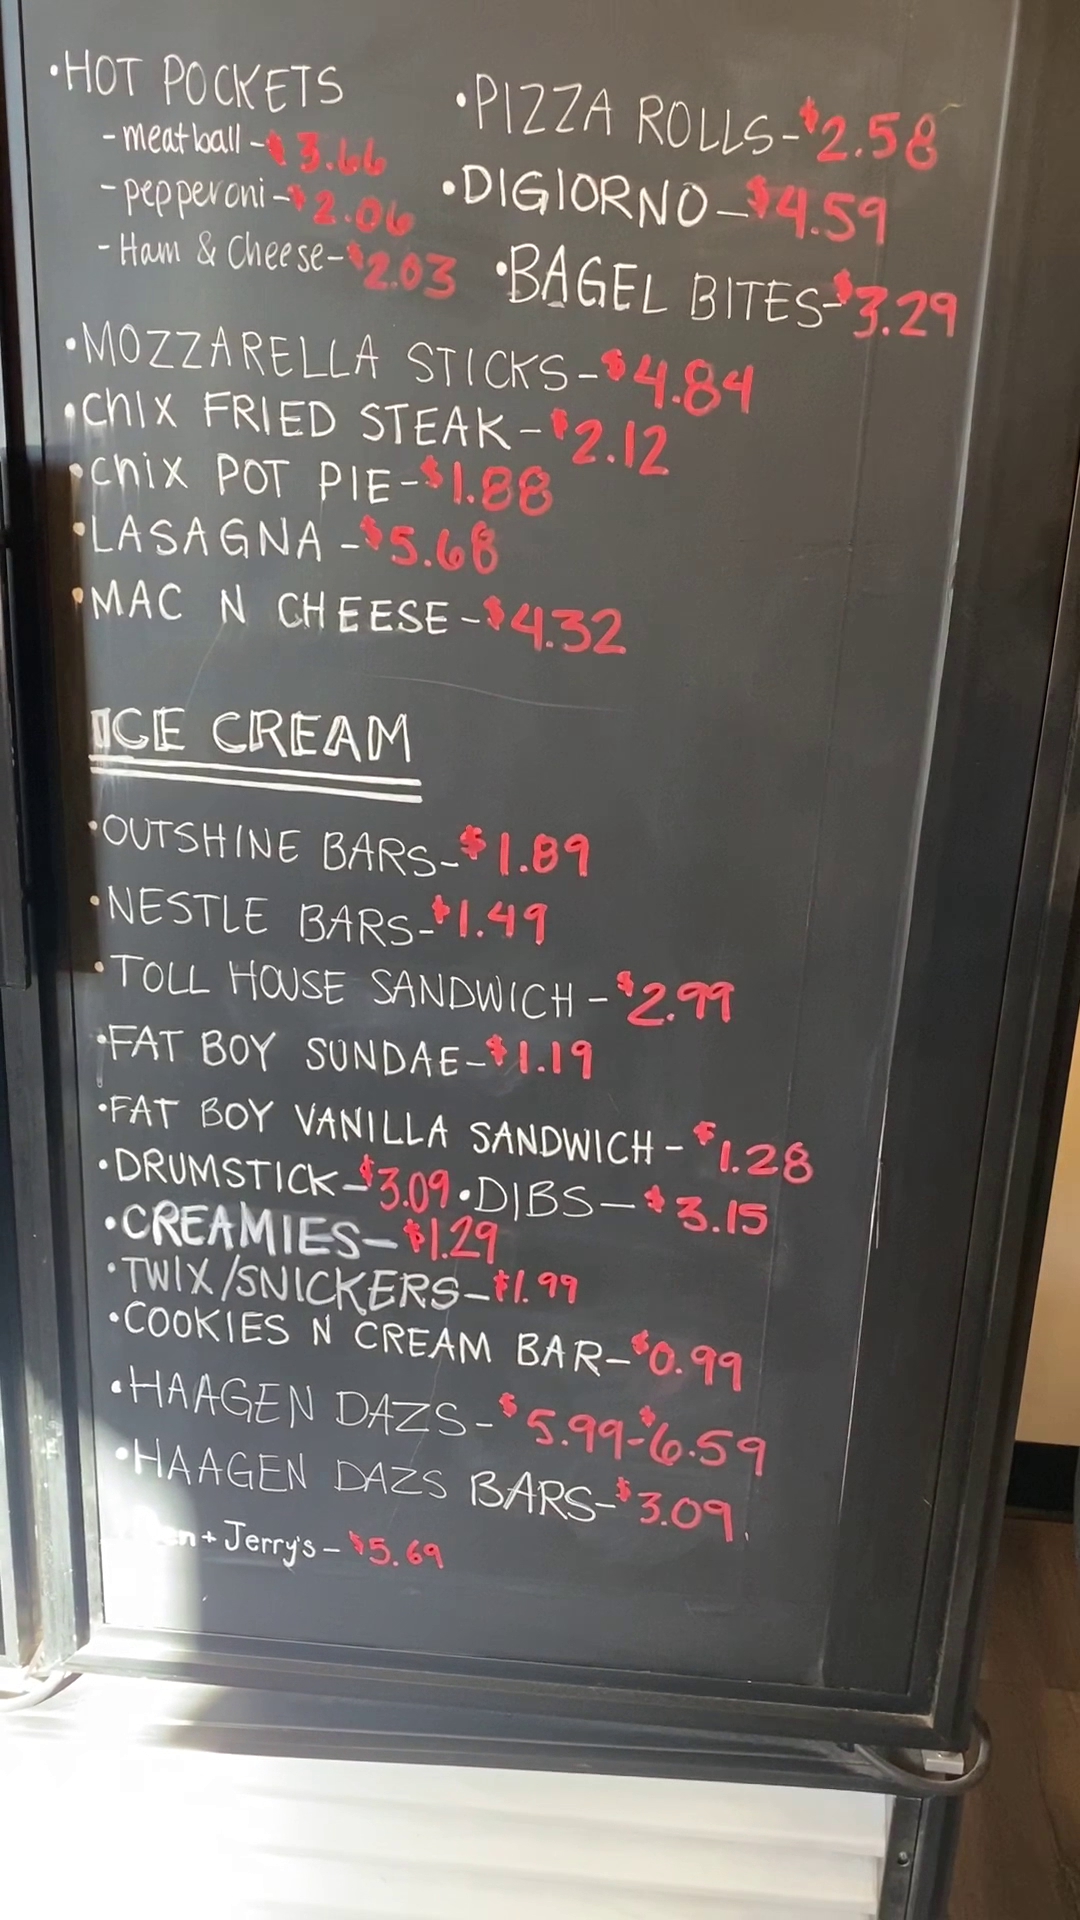 •HOT POCKETS
-meatball-$3.66
-pepperoni-$2.06
-Ham & Cheese-$2.03
•PIZZA ROLLS-$2.58
•DIGIORNO-$4.59
•BAGEL BITES-$3.29
•MOZZARELLA STICKS-$4.84
•ChIX FRIED STEAK-$2.12
•ChIX POT PIE-$1.88
•LASAGNA-$5.68
•MAC N CHEESE-$4.32
ICE CREAM
•OUTSHINE BARS-$1.89
•NESTLE BARS-$1.49
•TOLL HOUSE SANDWICH-$2.99
•FAT BOY SUNDAE-$1.19
•FAT BOY VANILLA SANDWICH-$1.28
•DRUMSTICK-$3.09 •DIBS-$3.15
•CREAMIES-$1.29
•TWIX/SNICKERS-$1.99
•COOKIES N CREAM BAR-$0.99
•HAAGEN DAZS-$5.99-$6.59
•HAAGEN DAZS BARS-$3.09
en+Jerry's-$5.69